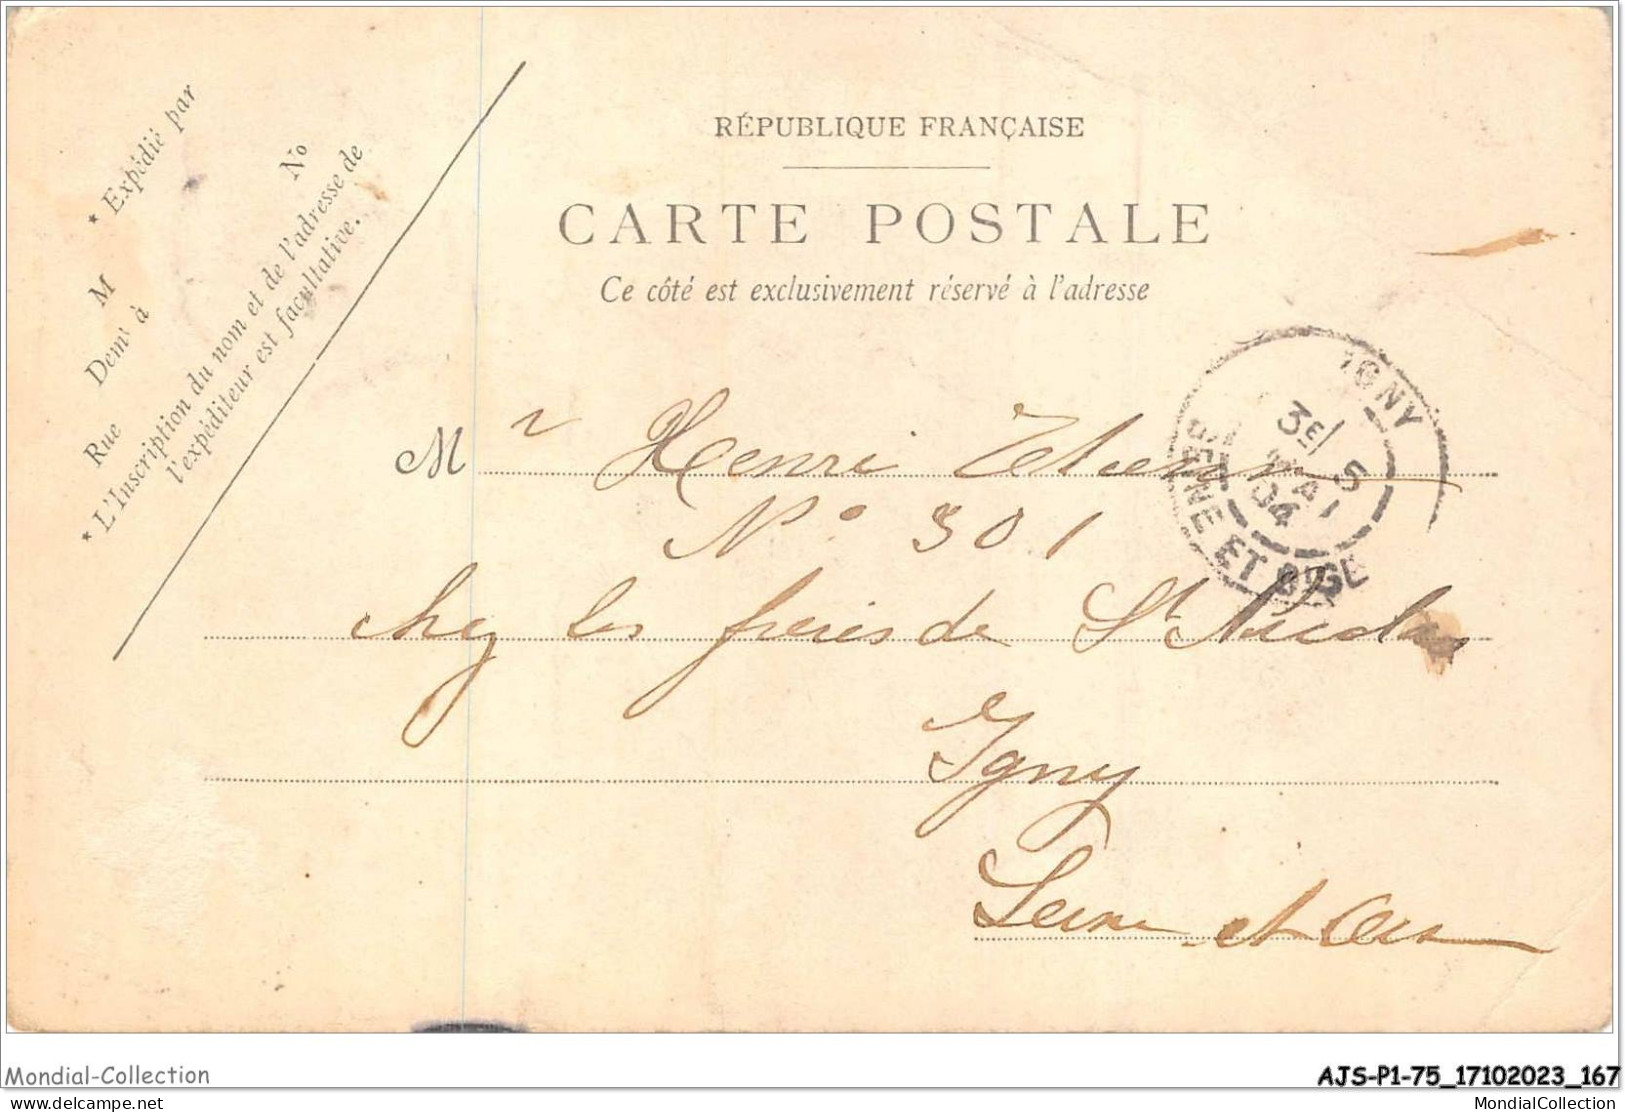 * Expédié par
M No
Demt à
Rue
* L'Inscription du nom et de l'adresse de
l'expéditeur est facultative.
RÉPUBLIQUE FRANÇAISE
CARTE POSTALE
Ce côté est exclusivement réservé à l'adresse
IGNY
3E 5
MAI
04
SEINE ET OISE
M r Henri
N° 301
chez les frères de St Nicolas
Igny
Seine et Oise
Mondial-Collection
AJS-P1-75_17102023_167
delcampe.net
MondialCollection